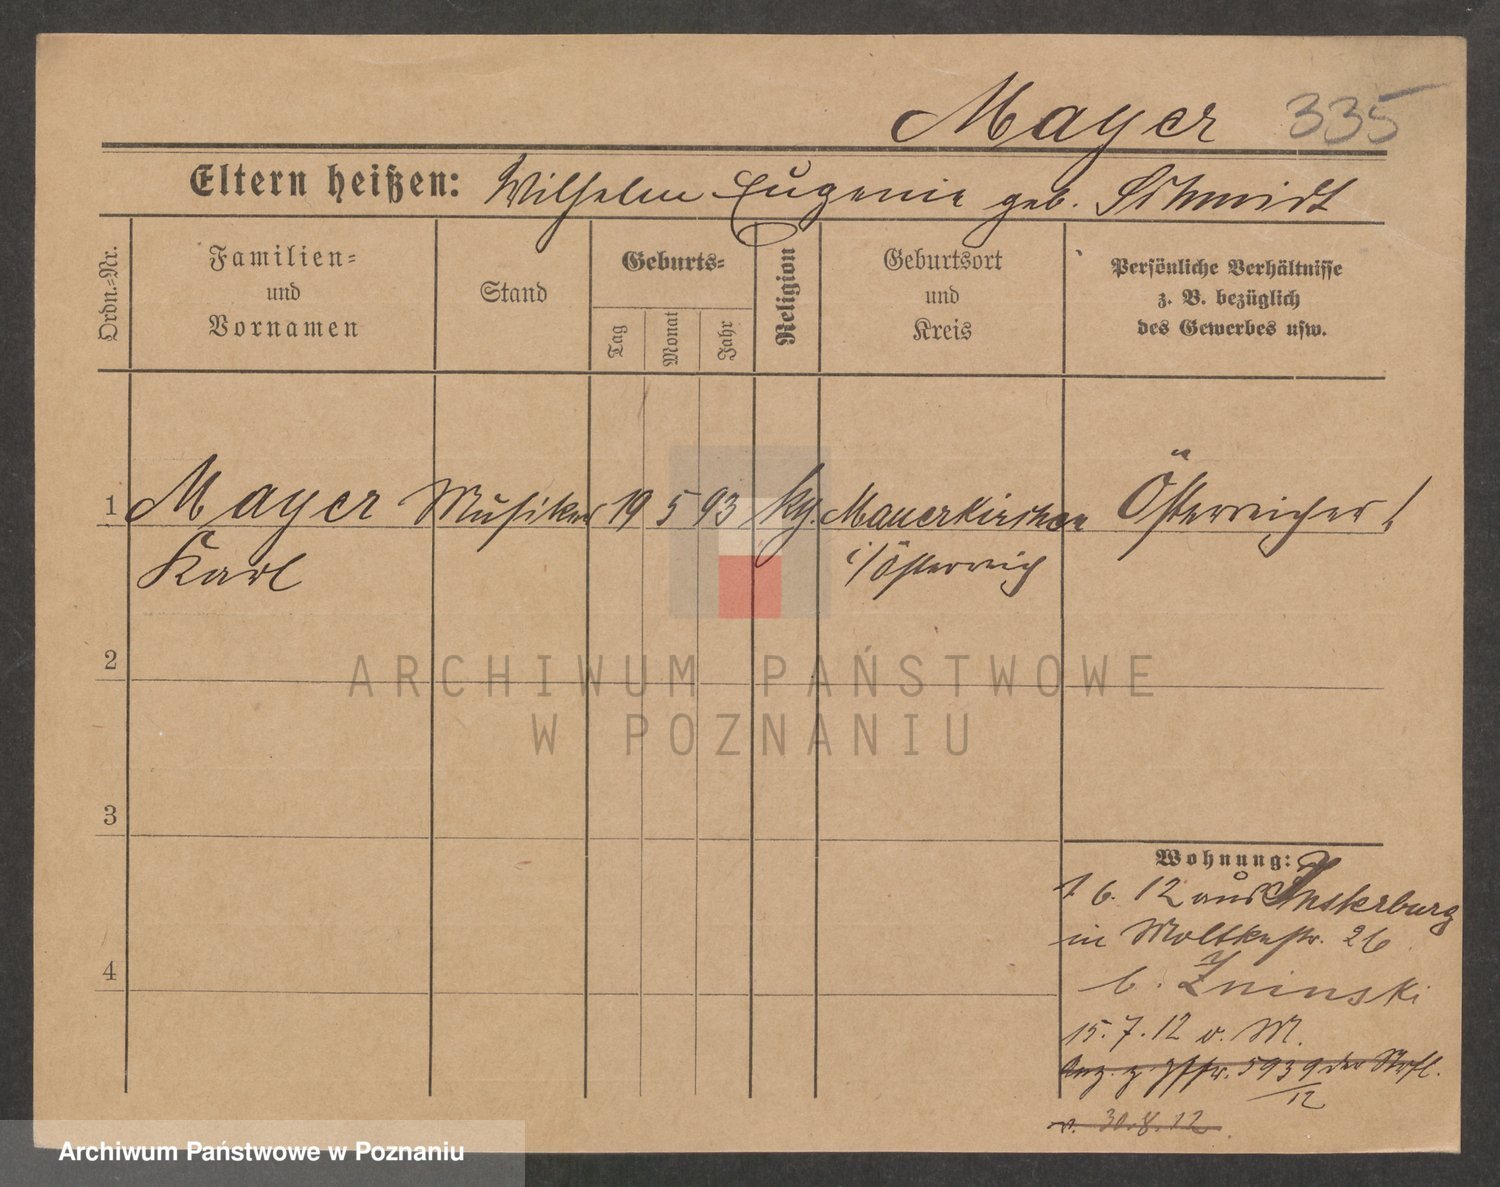 Mayer 335
Eltern heißen: Wilhelm Eugenie geb. Schmidt
Ordn.-Nr.
Familien-
und
Vornamen
Stand
Geburts-
Tag
Monat
Jahr
Religion
Geburtsort
und
Kreis
Persönliche Verhältnisse
z. B. bezüglich
des Gewerbes usw.
1 Mayer Musiker 19 5 93 Mauerkirchen Österreicher!
Karl i/Österreich
2
3
4
Wohnung:
1 6. 12 aus Insterburg
in Moltkestr. 26
b. Zninski
15. 7. 12 v. M.
5939 der
12
v. 30.8.12
ARCHIWUM PAŃSTWOWE
W POZNANIU
Archiwum Państwowe w Poznaniu